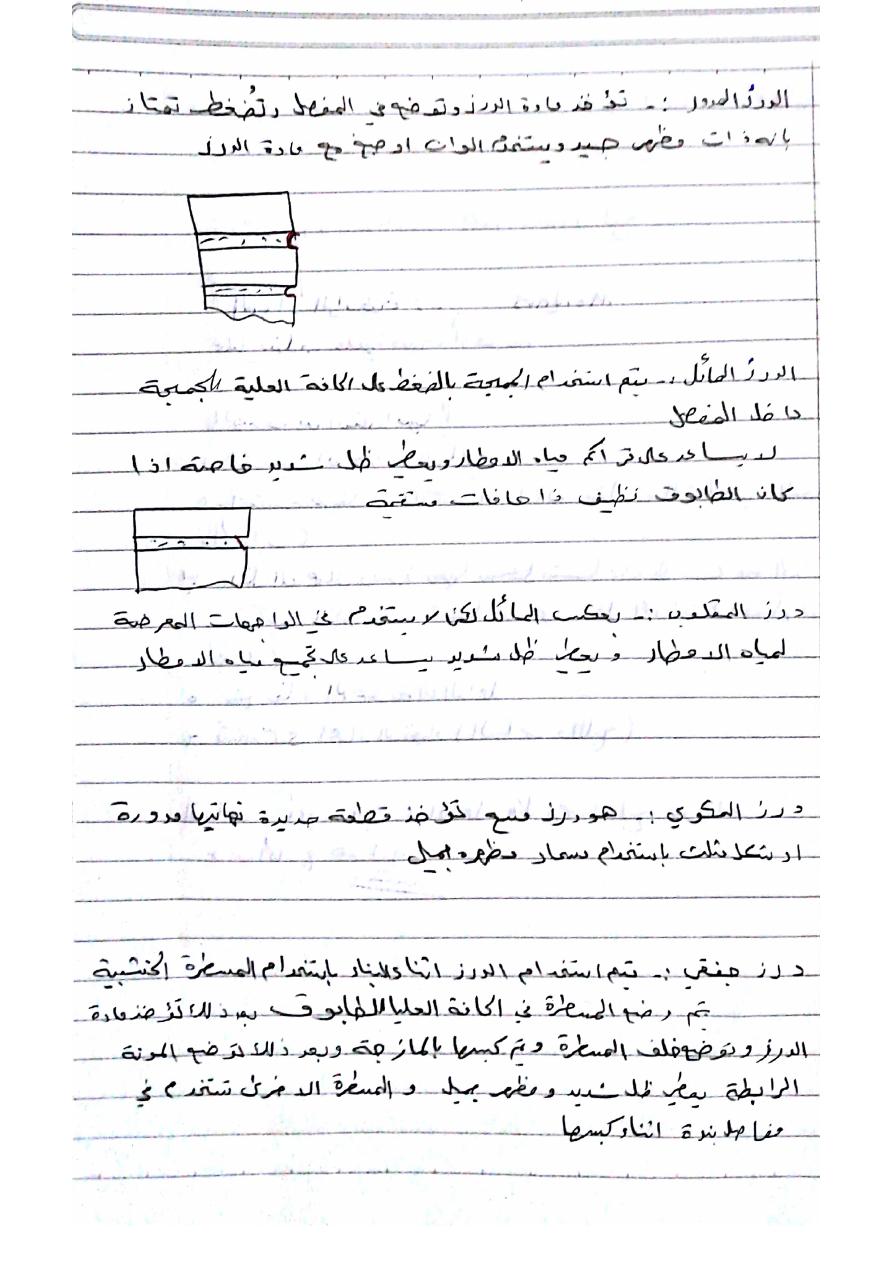 الدرز المدور :- تؤخذ مادة الدرز وتوضع في المفصل وتُضغط تمتاز
بانه ذات مظهر جيد ويستخدم الوان او صبغ مع مادة الدرز
الدرز المائل :- يتم استخدام الجمجة بالضغط على الحافة العلية للجمجة
داخل المفصل
لا يساعد على تراكم مياه الامطار ويعطي ظل شديد خاصته اذا
كان الطابوق نظيف ذا حافات مستقيمة
درز المقلوب :- بعكس المائل لكن لا يستخدم في الواجهات المعرضة
لمياه الامطار ويعطي ظل شديد يساعد على تجميع مياه الامطار
درز المكوي :- هو درز تؤخذ قطعة حديدة نهاتيها مدورة
او شكل مثلث باستخدام مسمار مظهره جميل
درز حنفي :- تيم استخدام الدرز اثناء البناء باستخدام المسطرة الخشبية
يتم وضع المسطرة في الحافة العليا للطابوق بعد ذلك تؤخذ مادة
الدرز وتوضع خلف المسطرة ويتم كبسها بالمازجة وبعد ذلك توضع المونة
الرابطة يعطي ظل شديد ومظهر جميل و المسطرة الاخرى تستخدم في
مفاصل اثناء كبسها